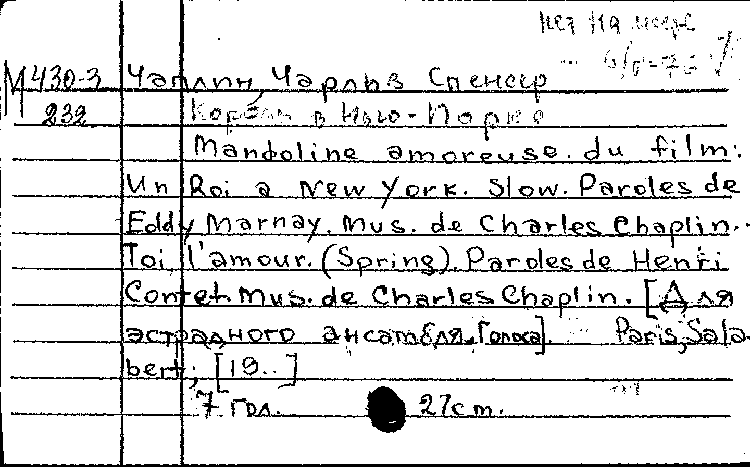 Нет на месте
М430-3 Чаплин, Чарльз Спенсер
232 Король в Нью-Йорке
Mandoline amoureuse. du film:
Un Roi a New York. Slow. Paroles de
Eddy Marnay. Mus. de Charles Chaplin..
Toi, l'amour. (Spring). Paroles de Henri
Contet. Mus. de Charles Chaplin. [Для
эстрадного ансамбля, Голоса]. Paris, Sala-
bert; [19..]
7 гол. 27cm.